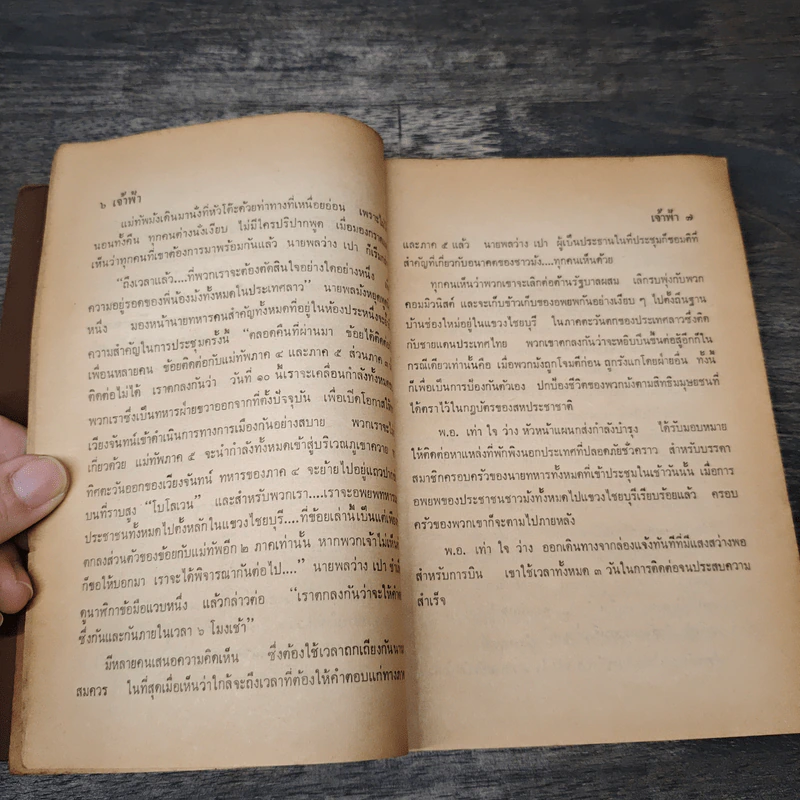 ๖ เจ้าฟ้า
แม่ทัพมังเดินมานั่งที่หัวโต๊ะด้วยท่าทางที่เหนื่อยอ่อน เพราะไม่
นอนทั้งคืน ทุกคนต่างนั่งเงียบ ไม่มีใครปริปากพูด เมื่อมองกราด
เห็นว่าทุกคนที่เขาต้องการมาพร้อมกันแล้ว นายพลว่าง เปา ก็เริ่ม
“ถึงเวลาแล้ว....ที่พวกเราจะต้องตัดสินใจอย่างใดอย่างหนึ่ง
ความอยู่รอดของพี่น้องม้งทั้งหมดในประเทศลาว” นายพลม้งหยุด
หนึ่ง มองหน้านายทหารคนสำคัญทั้งหมดที่อยู่ในห้องประชุม
ความสำคัญในการประชุมครั้งนี้ “ตลอดคืนที่ผ่านมา ข้อยได้ติดต่อ
เพื่อนหลายคน ข้อยติดต่อกับแม่ทัพภาค ๔ และภาค ๕ ส่วนภาค
ติดต่อไม่ได้ เราตกลงกันว่า วันที่ ๑๐ นี้เราจะเคลื่อนกำลังทั้งหมด
พวกเราซึ่งเป็นทหารฝ่ายขวาออกจากที่ตั้งปัจจุบัน เพื่อเปิดโอกาสให้
เวียงจันทน์เข้าดำเนินการทางการเมืองกันอย่างสบาย พวกเราจะไม่
เกี่ยวด้วย แม่ทัพภาค ๕ จะนำกำลังทั้งหมดเข้าสู่บริเวณภูเขาควาย
ทิศตะวันออกของเวียงจันทน์ ทหารของภาค ๔ จะย้ายไปอยู่แถว
บนที่ราบสูง “โบโลเวน” และสำหรับพวกเรา....เราจะอพยพทหาร
ประชาชนทั้งหมดไปตั้งหลักในแขวงไชยบุรี....ที่ข้อยเล่านี้เป็นแต่เพียง
ตกลงส่วนตัวของข้อยกับแม่ทัพอีก ๒ ภาคเท่านั้น หากพวกเจ้าไม่เห็น
ก็ขอให้บอกมา เราจะได้พิจารณากันต่อไป....” นายพลว่าง เปา
ดูนาฬิกาข้อมือแวบหนึ่ง แล้วกล่าวต่อ “เราตกลงกันว่าจะให้คำ
ซึ่งกันและกันภายในเวลา ๖ โมงเช้า”
มีหลายคนเสนอความคิดเห็น ซึ่งต้องใช้เวลาถกเถียงกันนาน
สมควร ในที่สุดเมื่อเห็นว่าใกล้จะถึงเวลาที่ต้องให้คำตอบแก่ทางภาค
เจ้าฟ้า ๗
และภาค ๕ แล้ว นายพลว่าง เปา ผู้เป็นประธานในที่ประชุมก็ขอมติที่
สำคัญที่เกี่ยวกับอนาคตของชาวม้ง....ทุกคนเห็นด้วย
ทุกคนเห็นว่าพวกเขาจะเลิกต่อต้านรัฐบาลผสม เลิกรบพุ่งกับพวก
คอมมิวนิสต์ และจะเก็บข้าวเก็บของอพยพกันอย่างเรียบ ๆ ไปตั้งถิ่นฐาน
บ้านช่องใหม่อยู่ในแขวงไชยบุรี ในภาคตะวันตกของประเทศลาวซึ่งติด
กับชายแดนประเทศไทย พวกเขาตกลงกันว่าจะหยิบปืนขึ้นต่อสู้อีกก็ใน
กรณีเดียวเท่านั้นคือ เมื่อพวกม้งถูกโจมตีก่อน ถูกรังแกโดยฝ่ายอื่น ทั้งนี้
ก็เพื่อเป็นการป้องกันตัวเอง ปกป้องชีวิตของพวกม้งตามสิทธิมนุษยชนที่
ได้ตราไว้ในกฎบัตรของสหประชาชาติ
พ.อ. เท่า ใจ ว่าง หัวหน้าแผนกส่งกำลังบำรุง ได้รับมอบหมาย
ให้ติดต่อหาแหล่งที่พักพิงนอกประเทศที่ปลอดภัยชั่วคราว สำหรับบรรดา
สมาชิกครอบครัวของนายทหารทั้งหมดที่เข้าประชุมในเช้าวันนั้น เมื่อการ
อพยพของประชาชนชาวม้งทั้งหมดไปแขวงไชยบุรีเรียบร้อยแล้ว ครอบ
ครัวของพวกเขาก็จะตามไปภายหลัง
พ.อ. เท่า ใจ ว่าง ออกเดินทางจากล่องแจ้งทันทีที่มีแสงสว่างพอ
สำหรับการบิน เขาใช้เวลาทั้งหมด ๓ วันในการติดต่อจนประสบความ
สำเร็จ